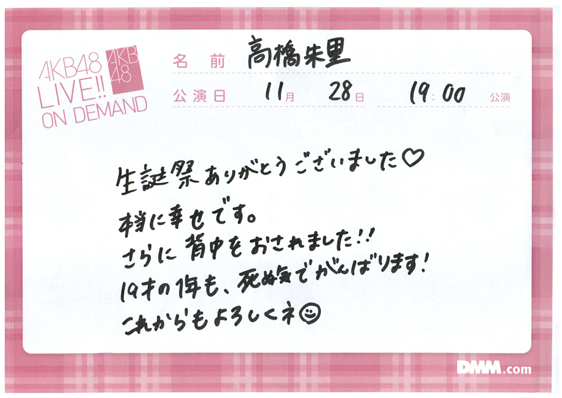 AKB48
LIVE!!
ON DEMAND
AKB
48
名前 高橋朱里
公演日 11月 28日 19:00 公演
生誕祭ありがとうございました♡
本当に幸せです。
さらに背中をおされました!!
19才の1年も、死ぬ気でがんばります!
これからもよろしくネ☺
DMM.com